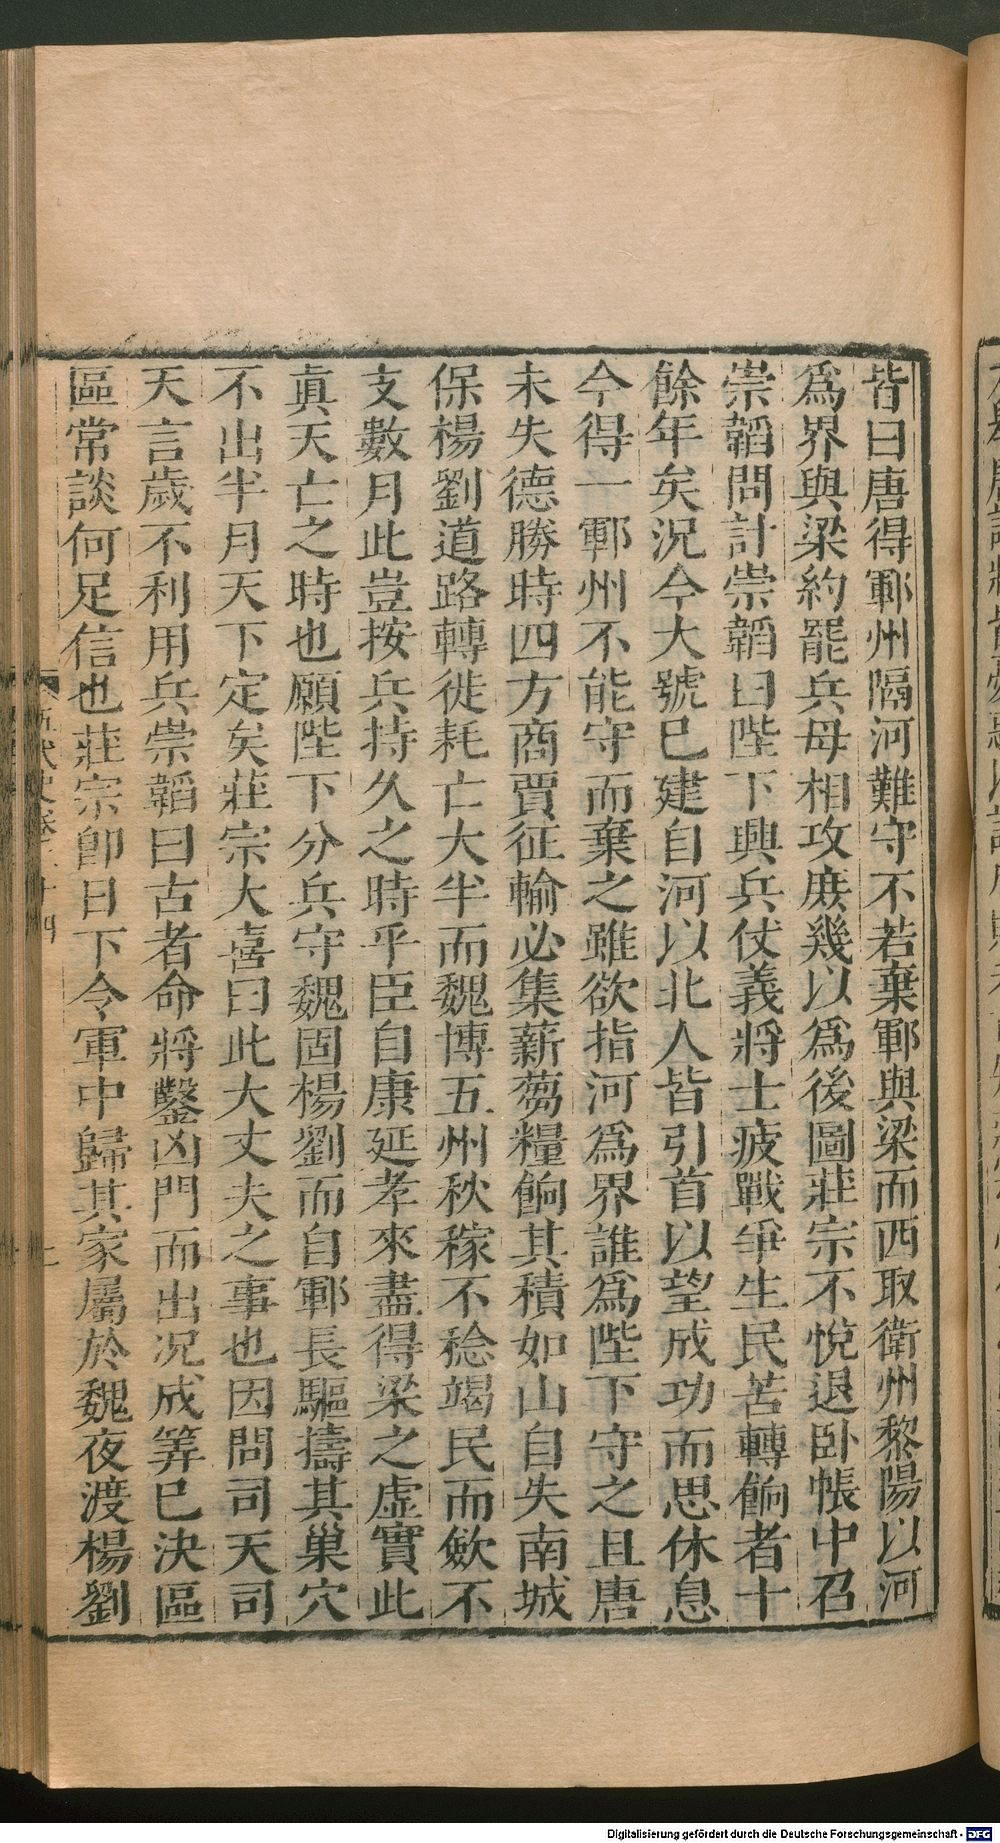 皆曰唐得鄆州隔河難守不若棄鄆與梁而西取衛州黎陽以河
爲界與梁約罷兵毋相攻庶幾以爲後圖莊宗不悅退臥帳中召
崇韜問計崇韜曰陛下興兵仗義將士疲戰爭生民苦轉餉者十
餘年矣況今大號已建自河以北人皆引首以望成功而思休息
今得一鄆州不能守而棄之雖欲指河爲界誰爲陛下守之且唐
未失德勝時四方商賈征輸必集薪蒭糧餉其積如山自失南城
保楊劉道路轉徙耗亡大半而魏博五州秋稼不稔竭民而歛不
支數月此豈按兵持久之時乎臣自康延孝來盡得梁之虛實此
眞天亡之時也願陛下分兵守魏固楊劉而自鄆長驅擣其巢穴
不出半月天下定矣莊宗大喜曰此大丈夫之事也因問司天司
天言歲不利用兵崇韜曰古者命將鑿凶門而出況成筭已決區
區常談何足信也莊宗卽日下令軍中歸其家屬於魏夜渡楊劉
五代史卷二十四
Digitalisierung gefördert durch die Deutsche Forschungsgemeinschaft - DFG